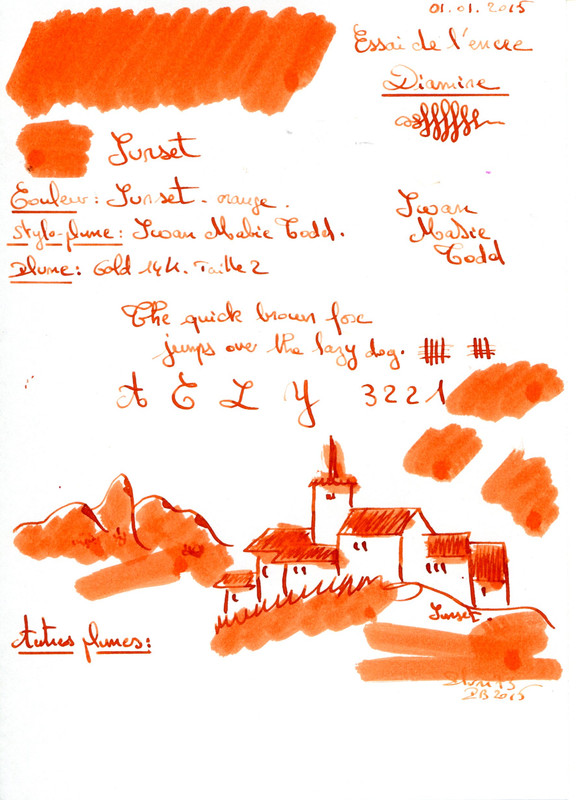 01.01.2015
Essai de l'encre
Diamine
Sunset
Couleur: Sunset. orange.
Stylo-plume: Swan Mabie Todd.
Plume: Gold 14k. Taille 2
Swan
Mabie
Todd
The quick brown fox
jumps over the lazy dog.
A E L Y 3221
Sunset
Autres plumes:
2015